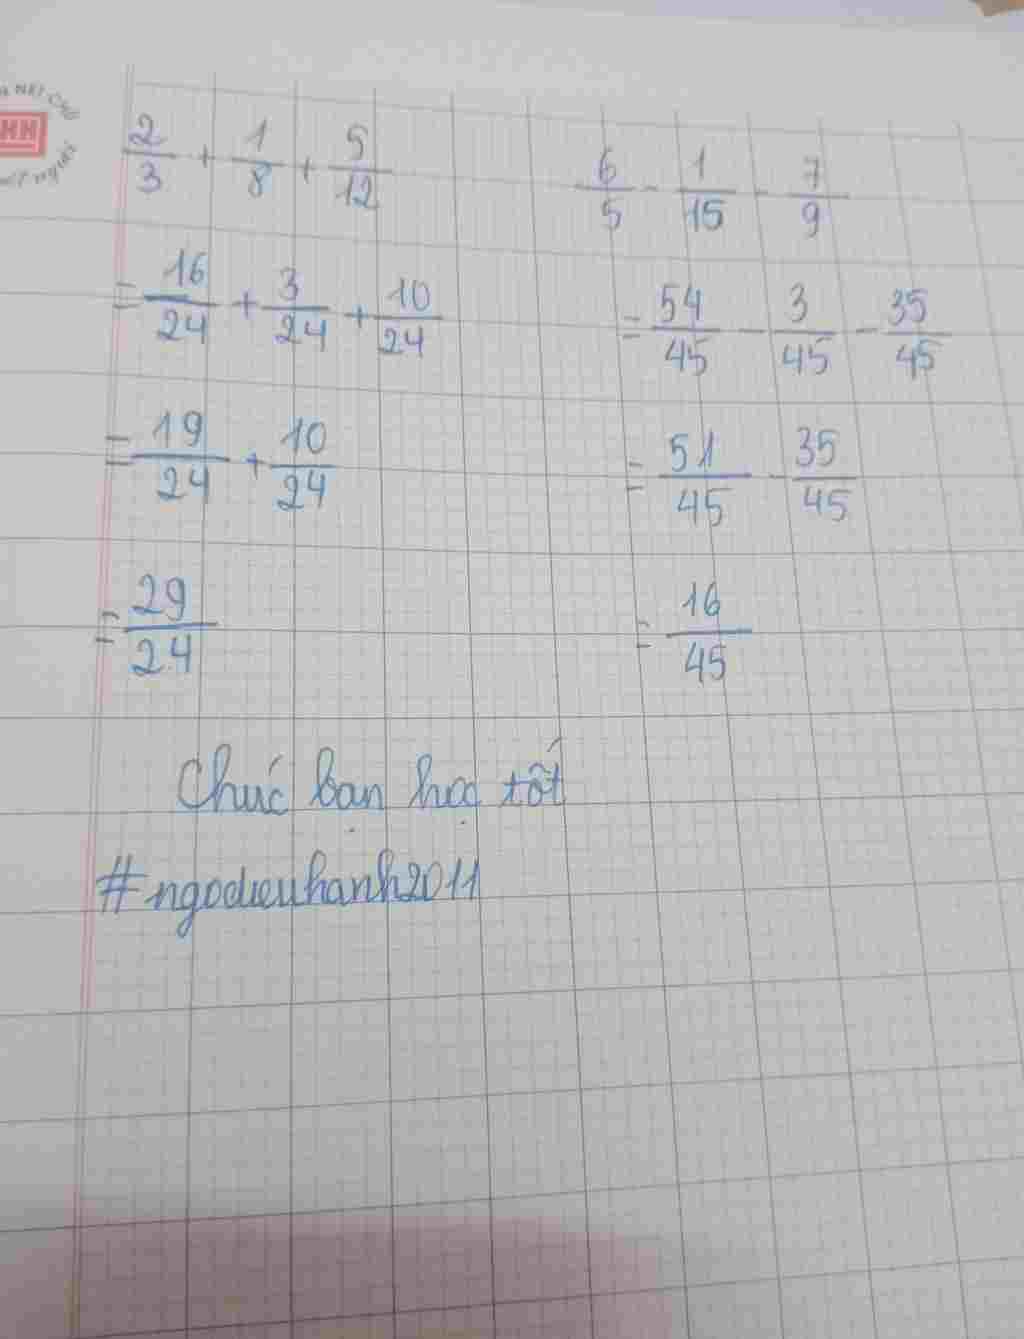 HH
2/3 + 1/8 + 5/12
= 16/24 + 3/24 + 10/24
= 19/24 + 10/24
= 29/24
6/5 - 1/15 - 7/9
= 54/45 - 3/45 - 35/45
= 51/45 - 35/45
= 16/45
Chúc bạn học tốt
#ngodieuhanh2011